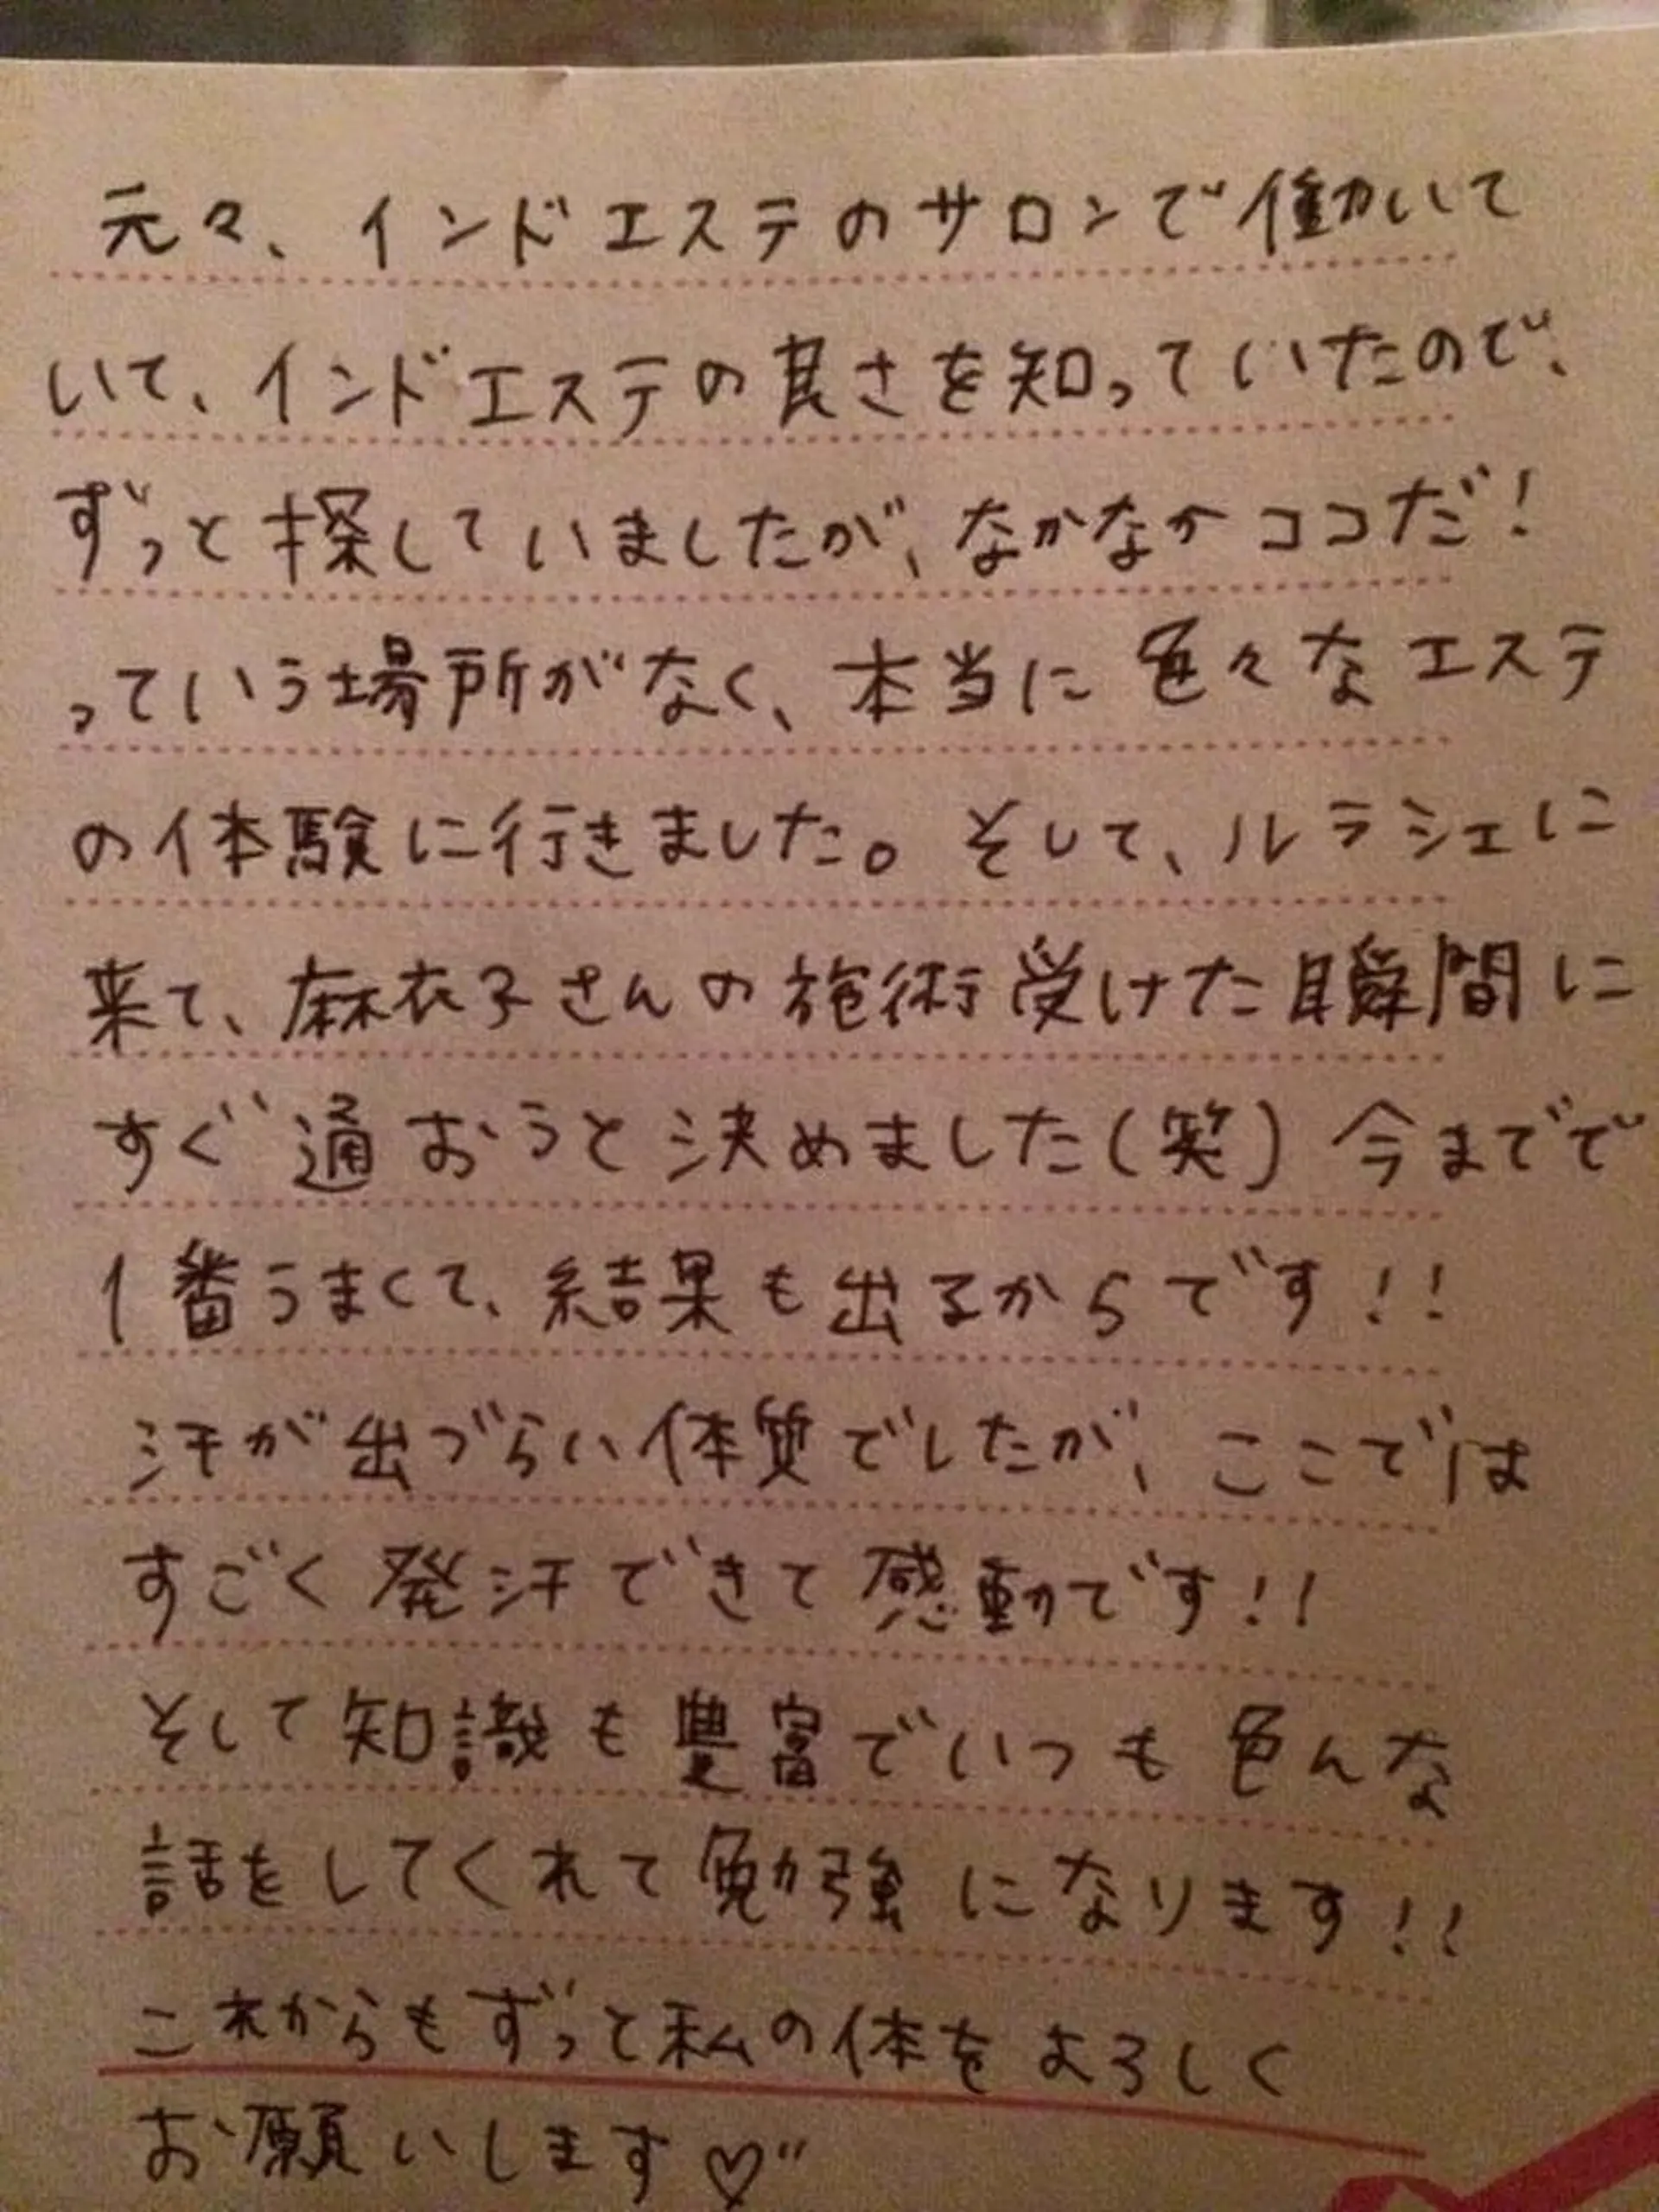 元々、インドエステのサロンで働いて
いて、インドエステの良さを知っていたので、
ずっと探していましたが、なかなかココだ!
っていう場所がなく、本当に色々なエステ
の体験に行きました。そして、ルラシェに
来て、麻衣子さんの施術受けた瞬間に
すぐ通おうと決めました(笑)今までで
1番うまくて、結果も出るからです!!
汗が出づらい体質でしたが、ここでは
すごく発汗できて感動です!!
そして知識も豊富でいつも色んな
話をしてくれて勉強になります!!
これからもずっと私の体をよろしく
お願いします♡"